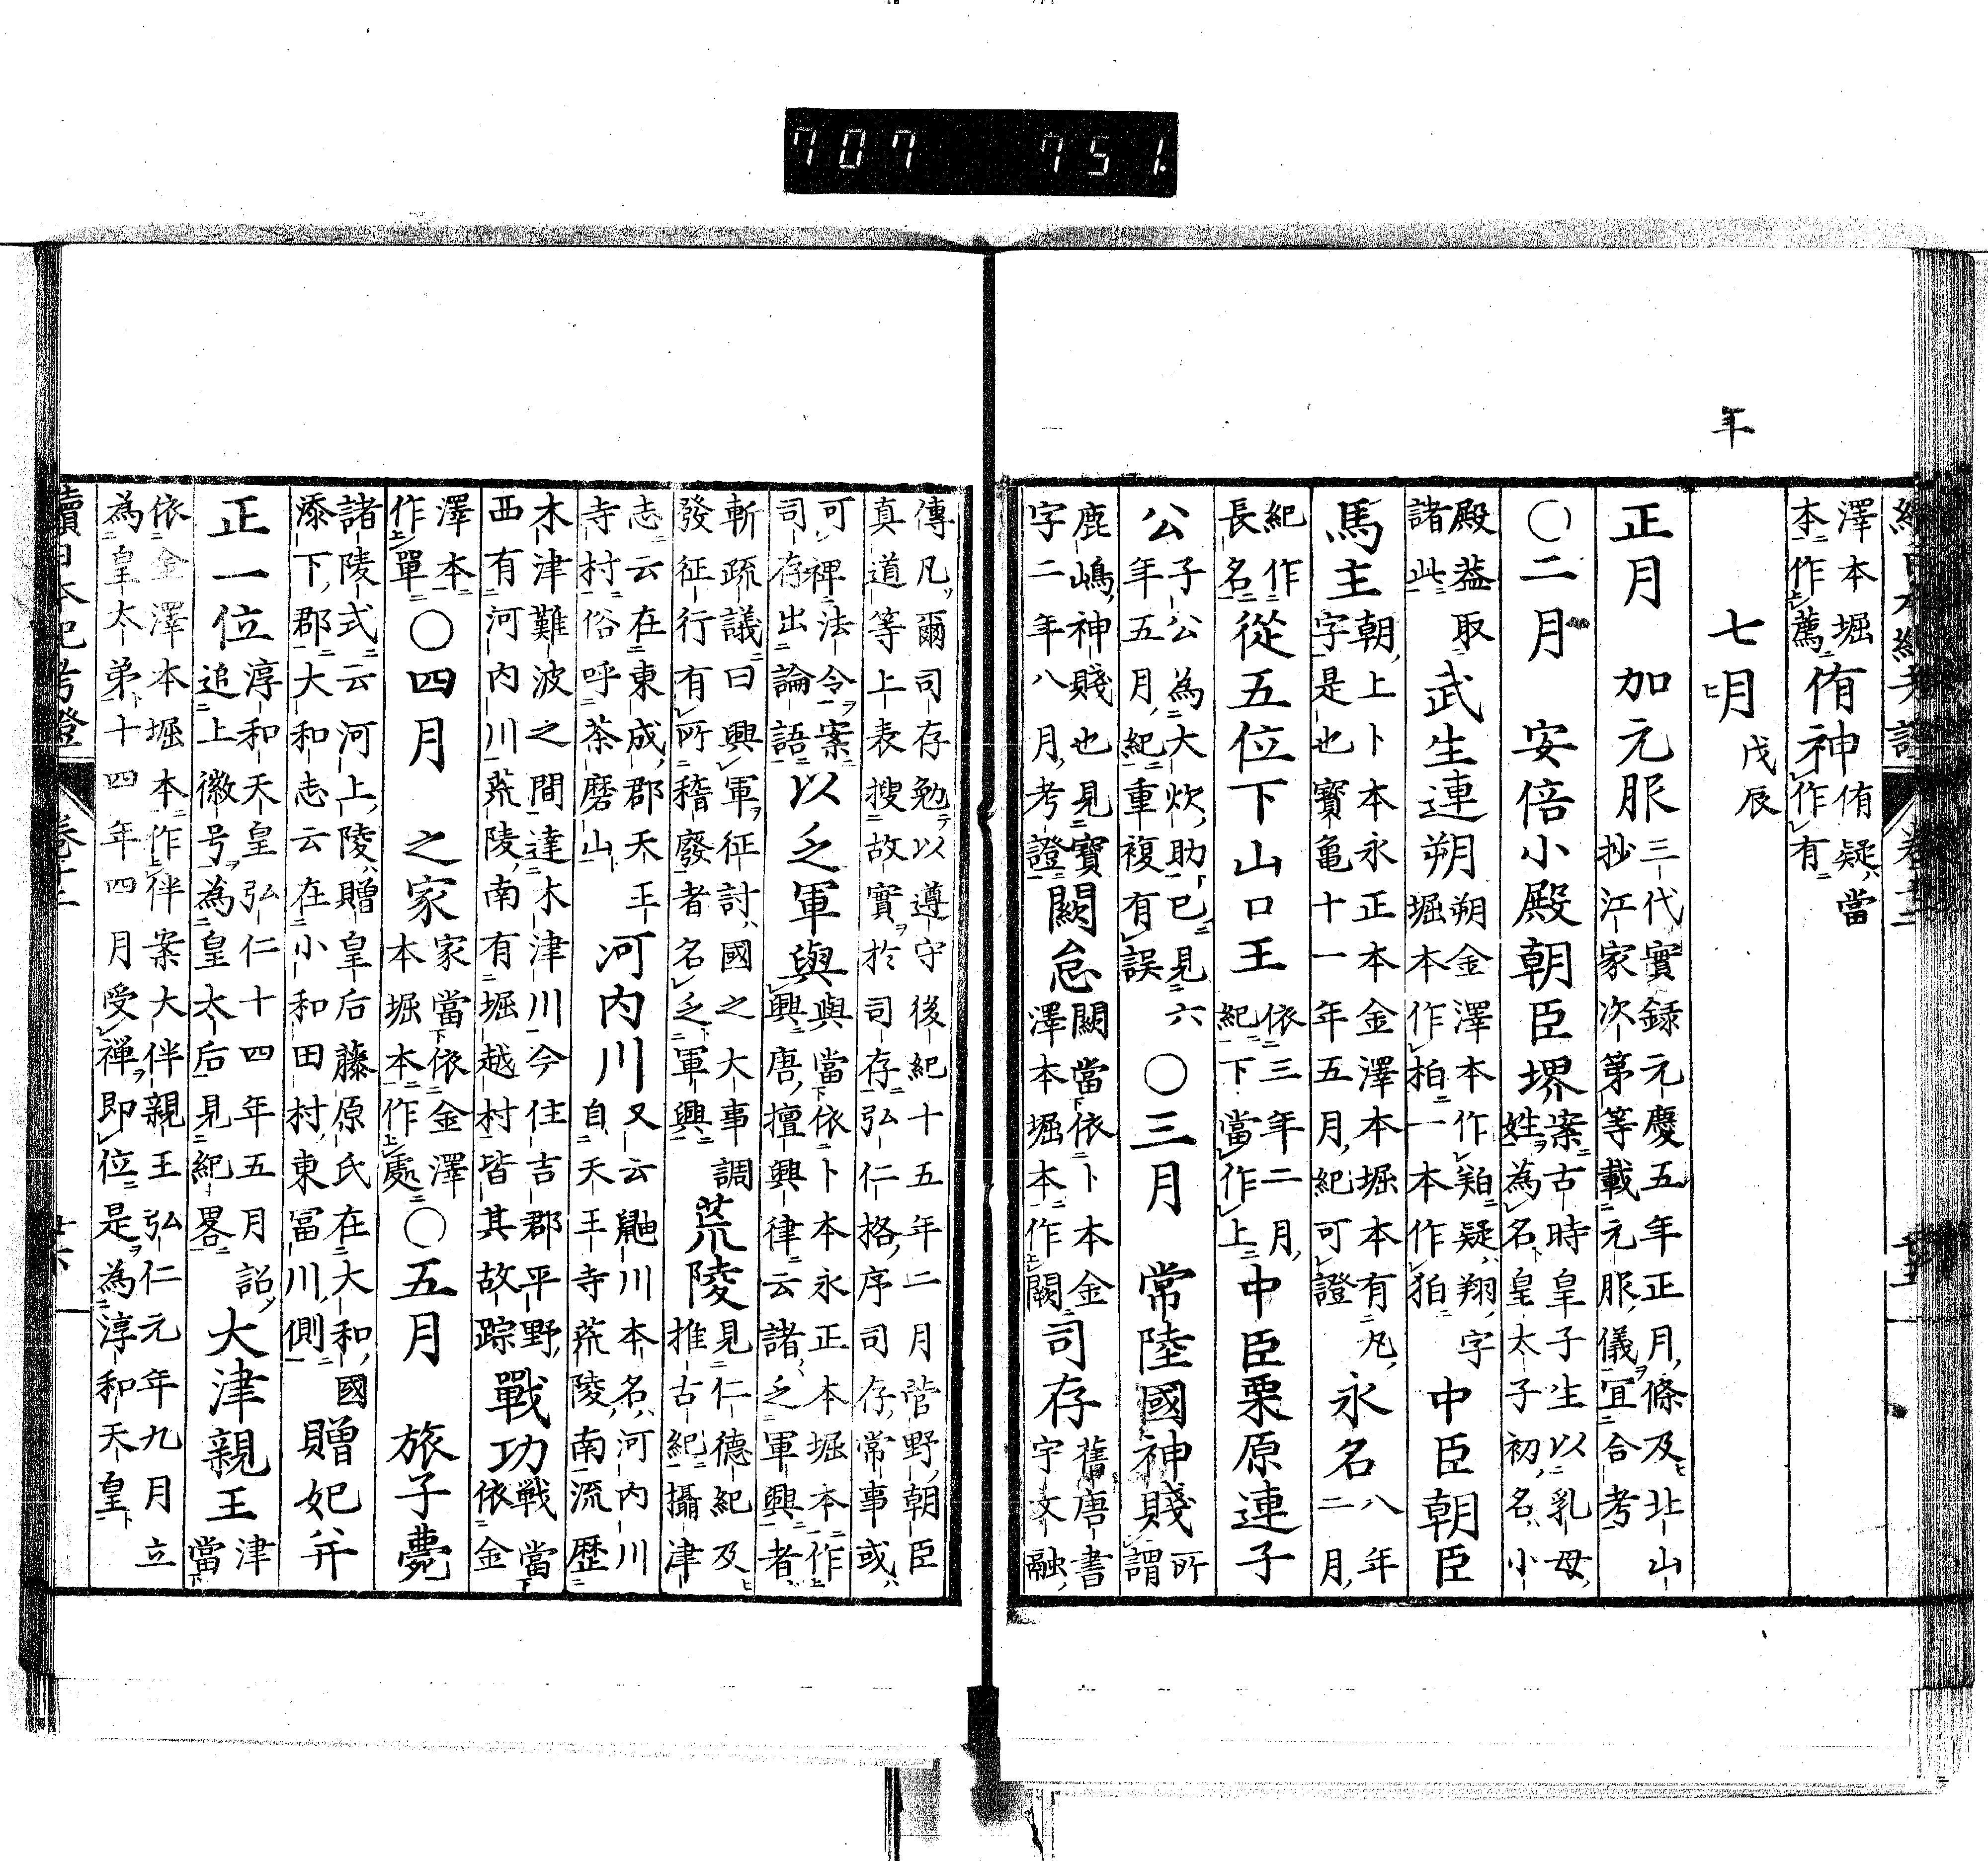 707 751
年
澤本堀
本作薦
侑神
侑疑當
作有
七月
戊辰
正月 加元服
三代實録元慶五年正月條及北山
抄江家次第等載元服儀冝合考
〇二月 安倍小殿朝臣堺
案古時皇子生以乳母
姓為名皇太子初名小
殿蓋取
諸此
武生連朔
朔金澤本作疑翔字
堀本作柏一本作狛
中臣朝臣
馬主
朝上卜本永正本金澤本堀本有凡
字是也寳亀十一年五月紀可證
永名
八年
二月
紀作
長名
從五位下山口王
依三年二月
紀下當作上
中臣栗原連子
公
子公為大炊助已見六
年五月紀重複有誤
〇三月 常陸國神賤
所
謂
鹿嶋神賤也見寶
字二年八月考證
闕怠
闕當依卜本金
澤本堀本作闕
司存
舊唐書
宇文融
傳凡爾司存勉以遵守後紀十五年二月菅野朝臣
真道等上表搜故實於司存弘仁格序司存常事或
可裨法令案
司存出論語
以乏軍與
與當依卜本永正本堀本作
興唐擅興律云諸乏軍興者
斬疏議曰興軍征討國之大事調
發征行有所稽廢者名乏軍興
荒陵
見仁德紀及
推古紀攝津
志云在東成郡天王
寺村俗呼茶磨山
河内川
又云鼬川本名河内川
自天王寺荒陵南流歷
木津難波之間達木津川今住吉郡平野
西有河内川荒陵南有堀越村皆其故踪
戰功
戦當
依金
澤本
作單
〇四月 之家
家當依金澤
本堀本作處
〇五月 旅子薨
諸陵式云河上陵贈皇后藤原氏在大和國
添下郡大和志云在小和田村東冨川側
贈妃并
正一位
淳和天皇弘仁十四年五月詔
追上徽号為皇太后見紀畧
大津親王
津
當
依金澤本堀本作伴案大伴親王弘仁元年九月立
為皇太弟十四年四月受禅即位是為淳和天皇
續日本紀考證